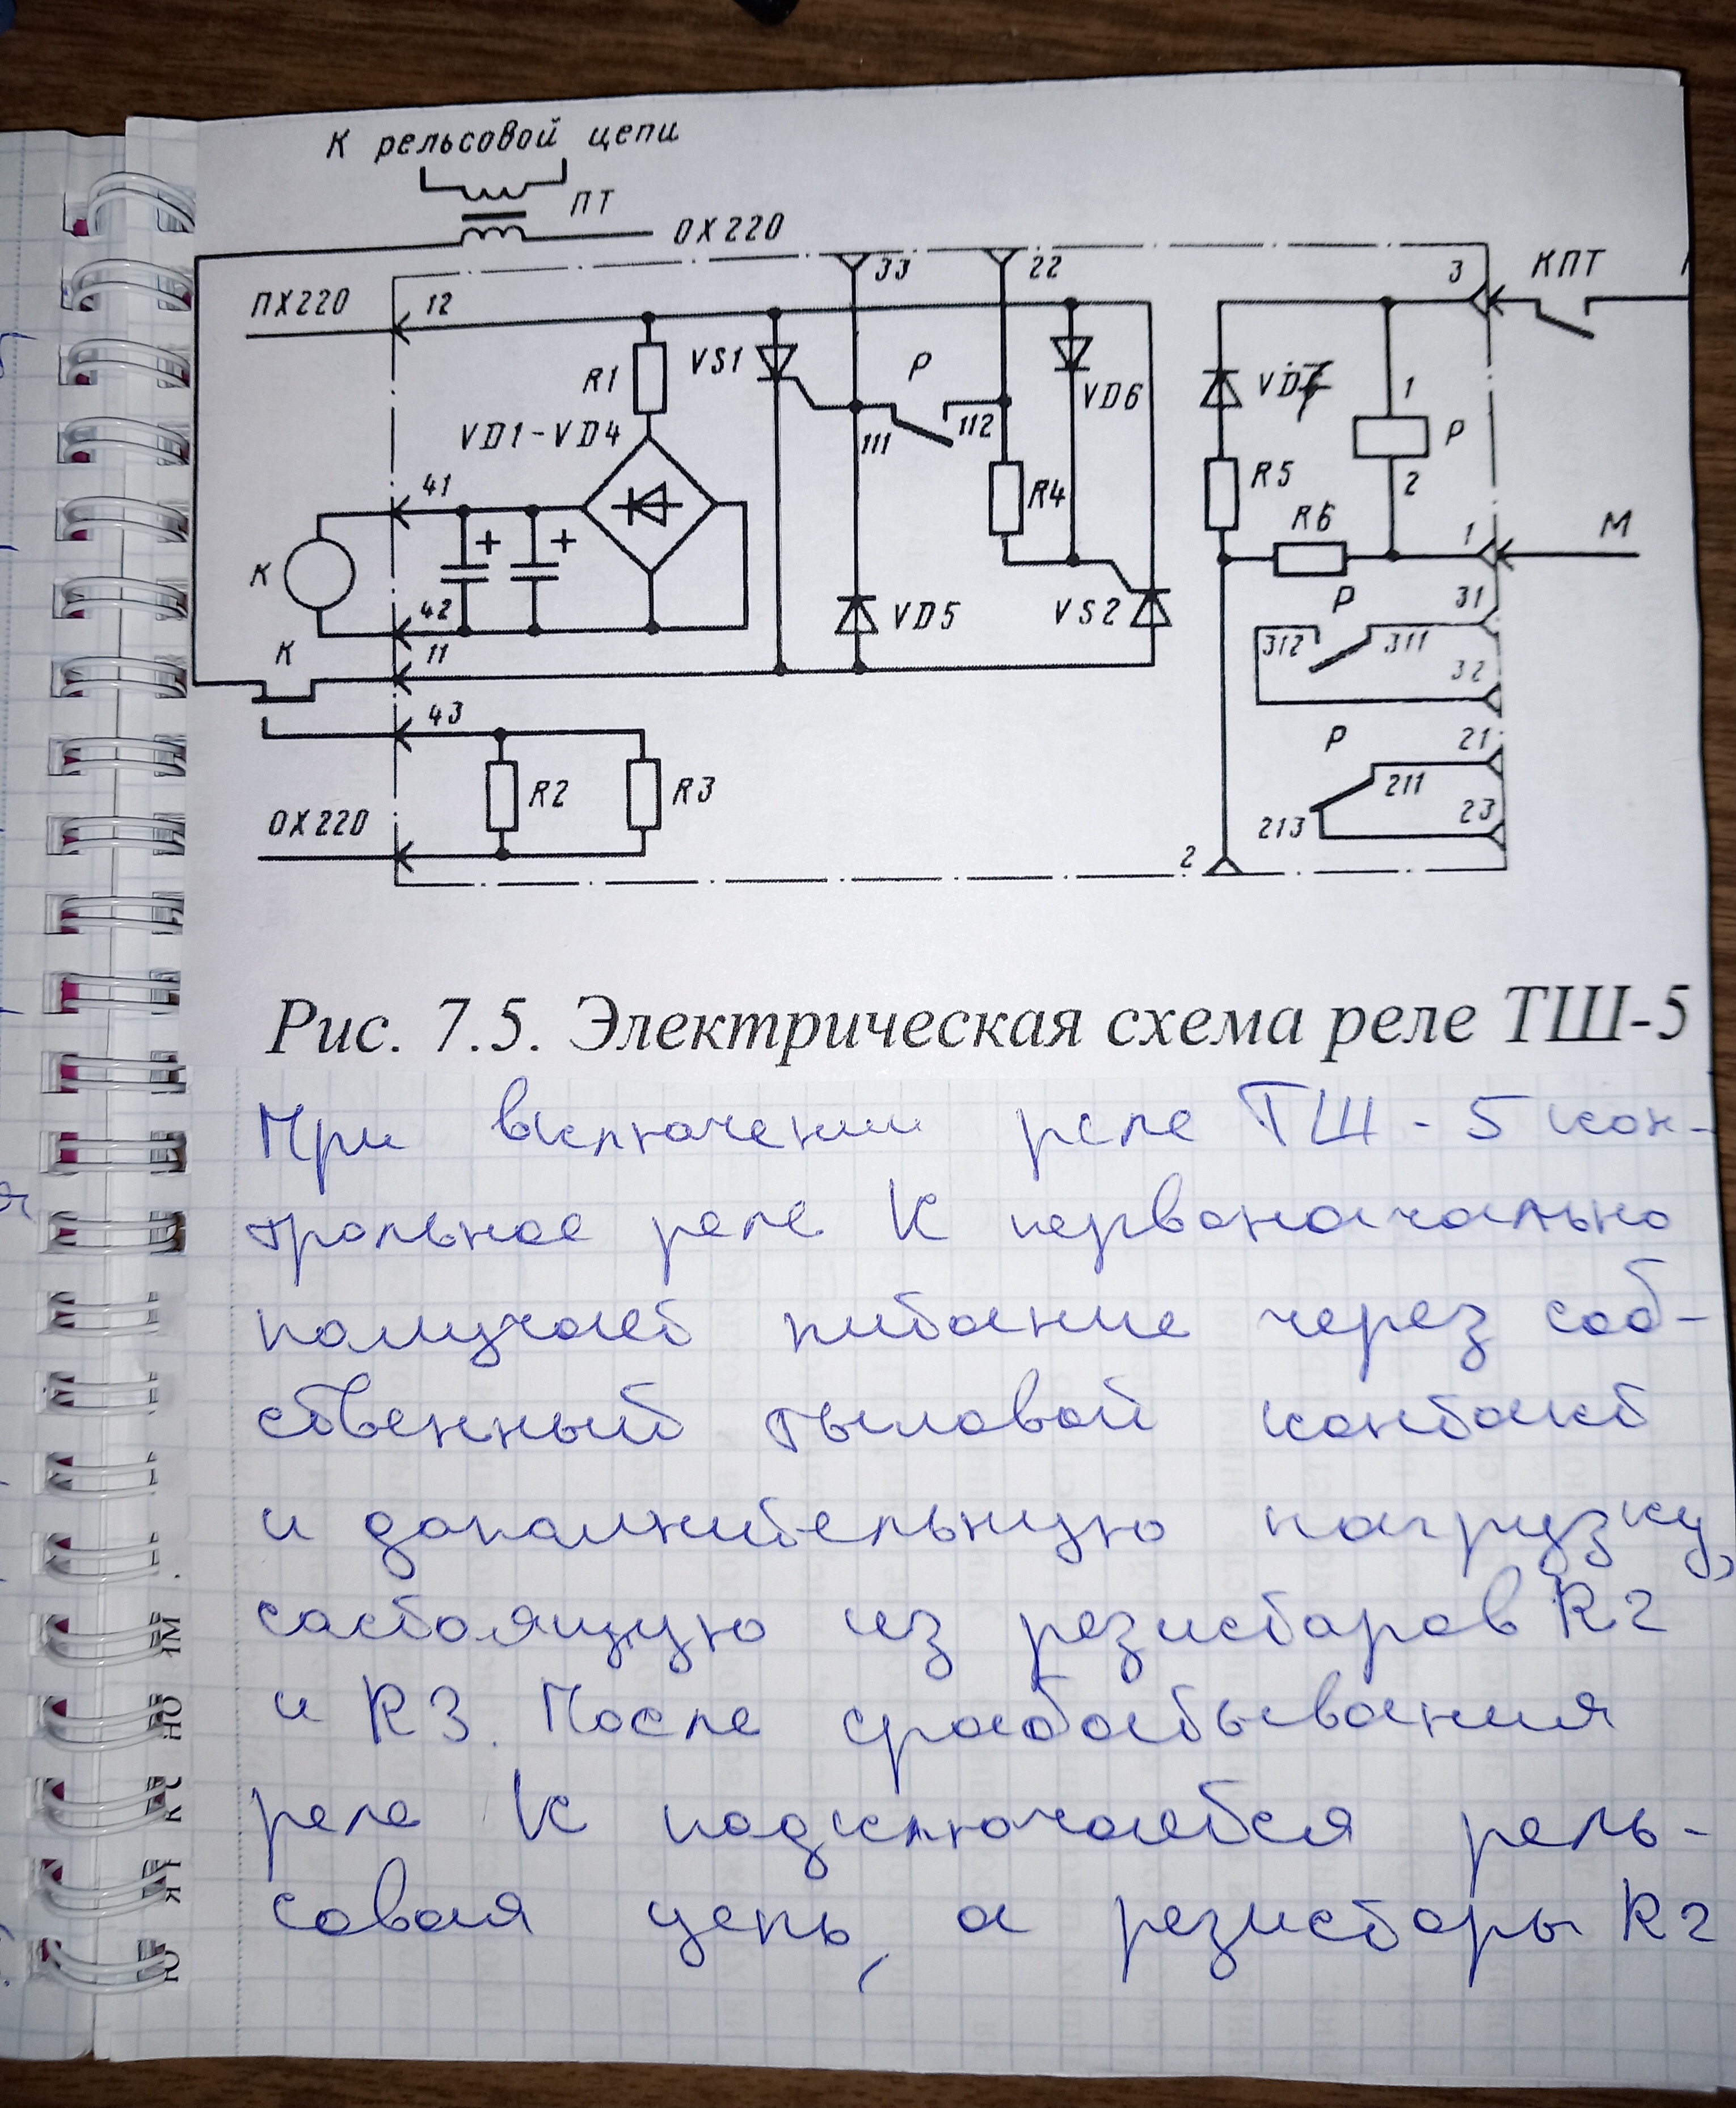 К рельсовой цепи
ПТ
ОХ220
33
22
3
КПТ
ПХ220
12
R1
VS1
Р
VD6
111
112
VD1-VD4
R4
1
Р
2
R5
R6
1
М
41
+
+
К
42
VD5
VS2
Р
31
312
311
32
К
11
43
R2
R3
ОХ220
Р
21
211
213
23
2
Рис. 7.5. Электрическая схема реле ТШ-5
При включении реле ТШ-5 кон-
трольное реле К первоначально
получает питание через соб-
ственный тыловой контакт
и дополнительную нагрузку,
состоящую из резисторов R2
и R3. После срабатывания
реле К подключается рель-
совая цепь, а резисторы R2